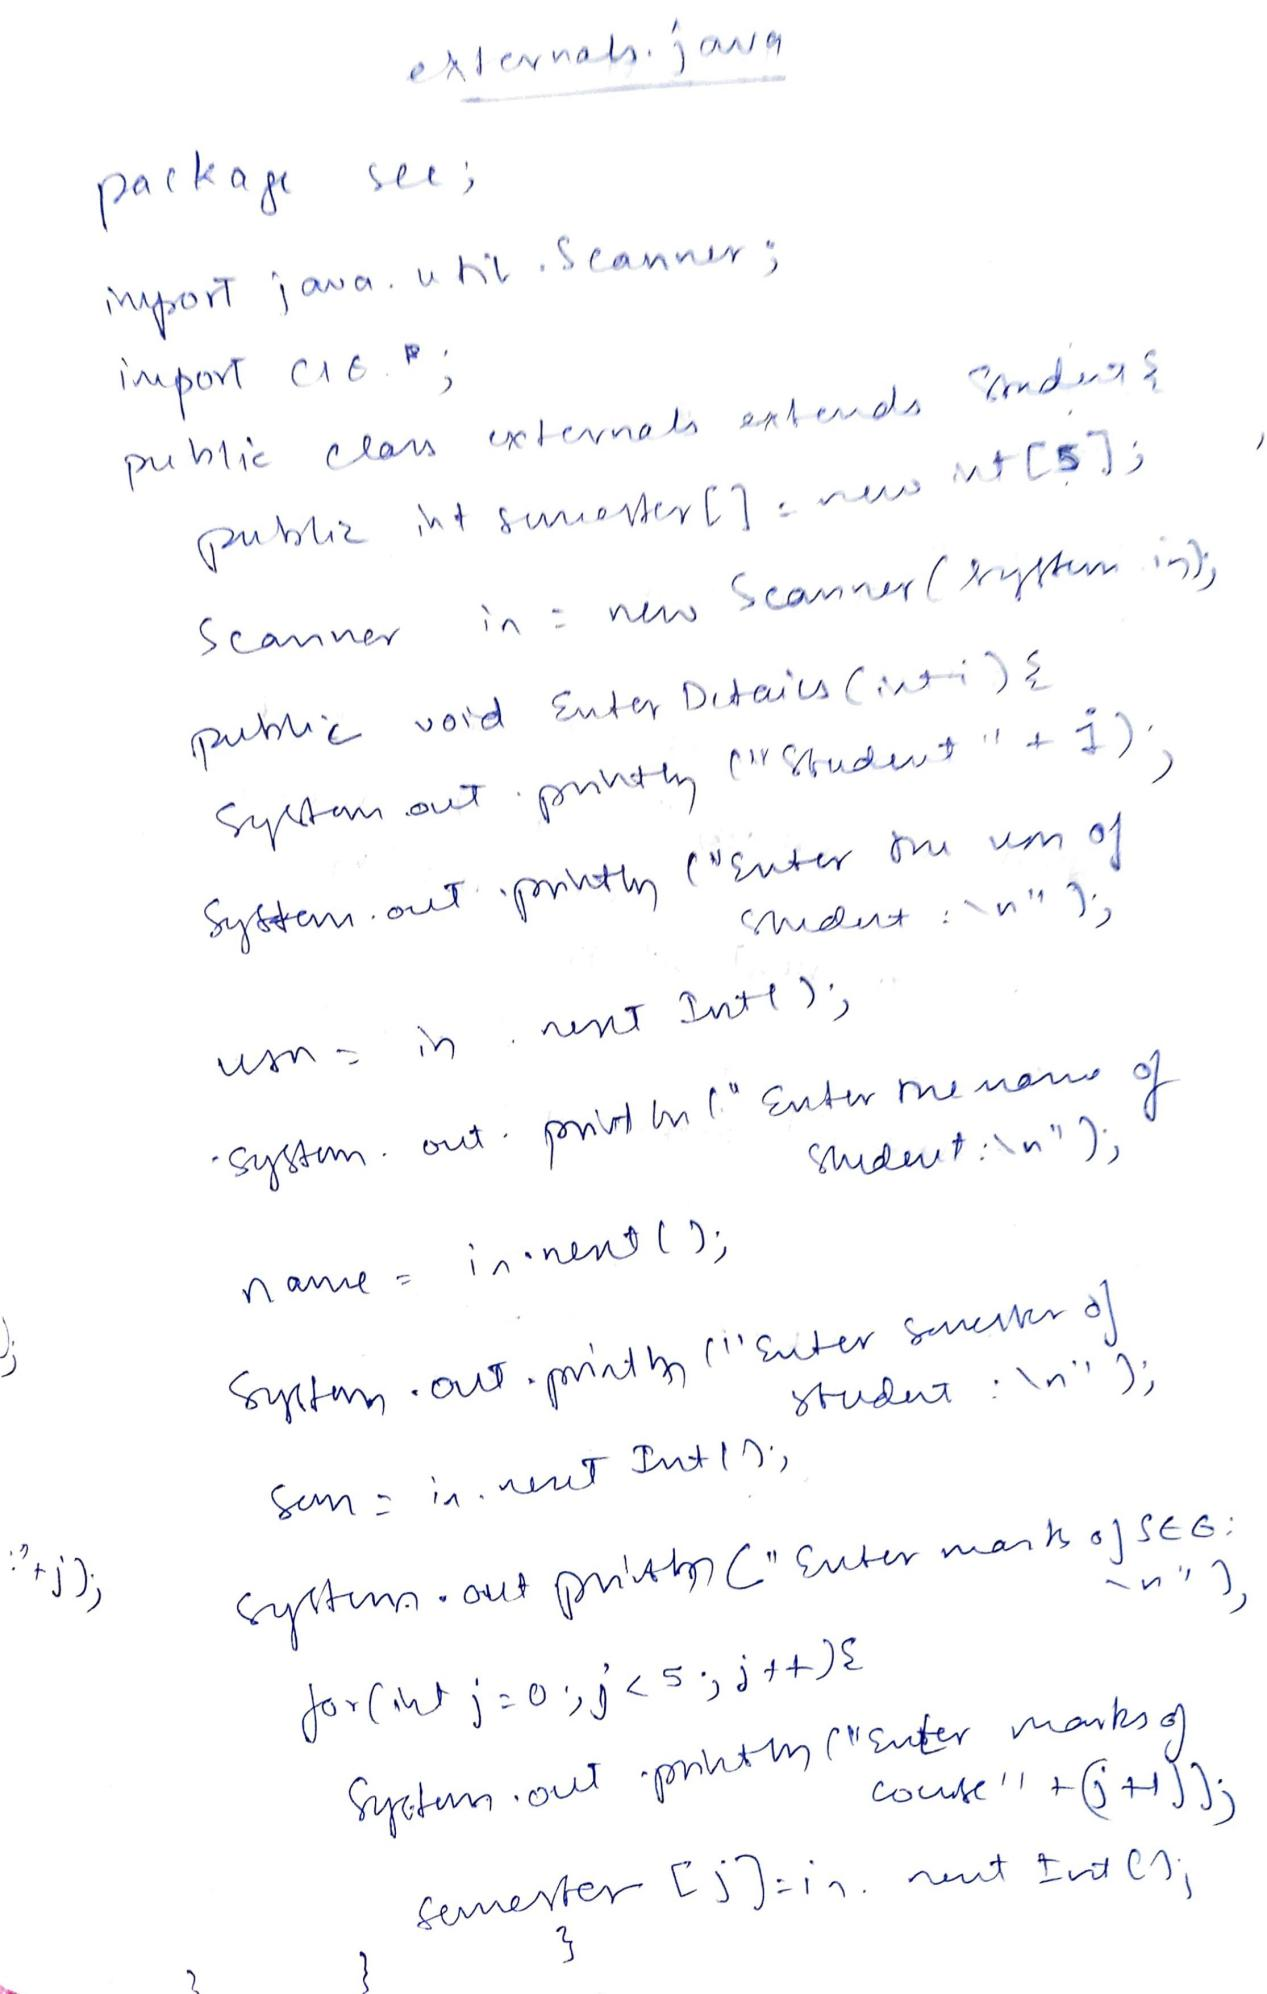 externals.java
package see;
import java.util.Scanner;
import CIE.*;
public class externals extends Student{
public int semester[] = new int[5];
Scanner in = new Scanner(System.in);
public void Enter Details(int i){
System.out.println("Student" + i);
System.out.println("Enter the usn of
student:\n");
usn = in.next Int();
System.out.println("Enter the name of
student:\n");
name = in.next();
System.out.println("Enter semester of
student:\n");
sem = in.next Int();
:"+j);
System.out println("Enter marks of SEE:
\n");
for(int j=0;j<5;j++){
System.out.println("Enter marks of
course" +(j+1));
semester[j]=in.next Int();
}
}
}